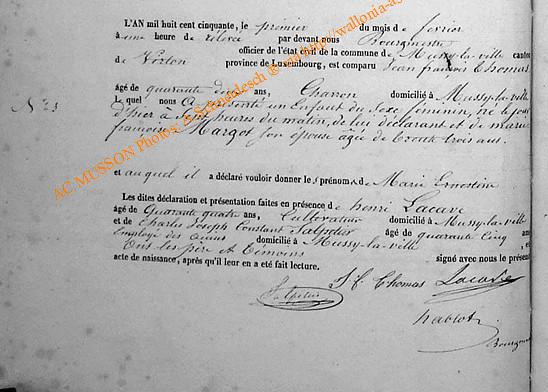 L'AN mil huit cent cinquante, le premier du mois de février
à une heure de relevée par devant nous Bourgmestre
officier de l'état civil de la commune de Mussy-la-ville canton
de Virton province de Luxembourg, est comparu Jean françois Thomas
âgé de quarante ans, Charron domicilié à Mussy-la-ville
N° 3
lequel nous a présenté un Enfant du Sexe féminin, né le jour
d'hier à heures du matin, de lui déclarant et de marie
françoise Margot son épouse agée de trente trois ans.
et auquel il a déclaré vouloir donner le prénom de Marie Ernestine
Les dites déclaration et présentation faites en présence de henri Lacave
âgé de Quarante quatre ans, Cultivateur domicilié à Mussy-la-ville
et de Charles Joseph Constant Salpetier âgé de quarante cinq ans
Employé des domicilié à Mussy-la-ville, et
ont les père et témoins signé avec nous le présent
acte de naissance, après qu'il leur en a été fait lecture.
J f Thomas Lacave
Salpetier
AC MUSSON Photos: